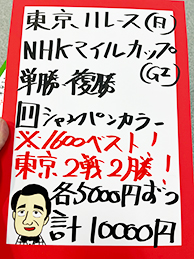 東京、11レース(日)
NHKマイルカップ
(GI)
単勝・複勝
11 シャンパンカラー
※1600ベスト!
東京2戦2勝!
各5000円ずつ
計10000円